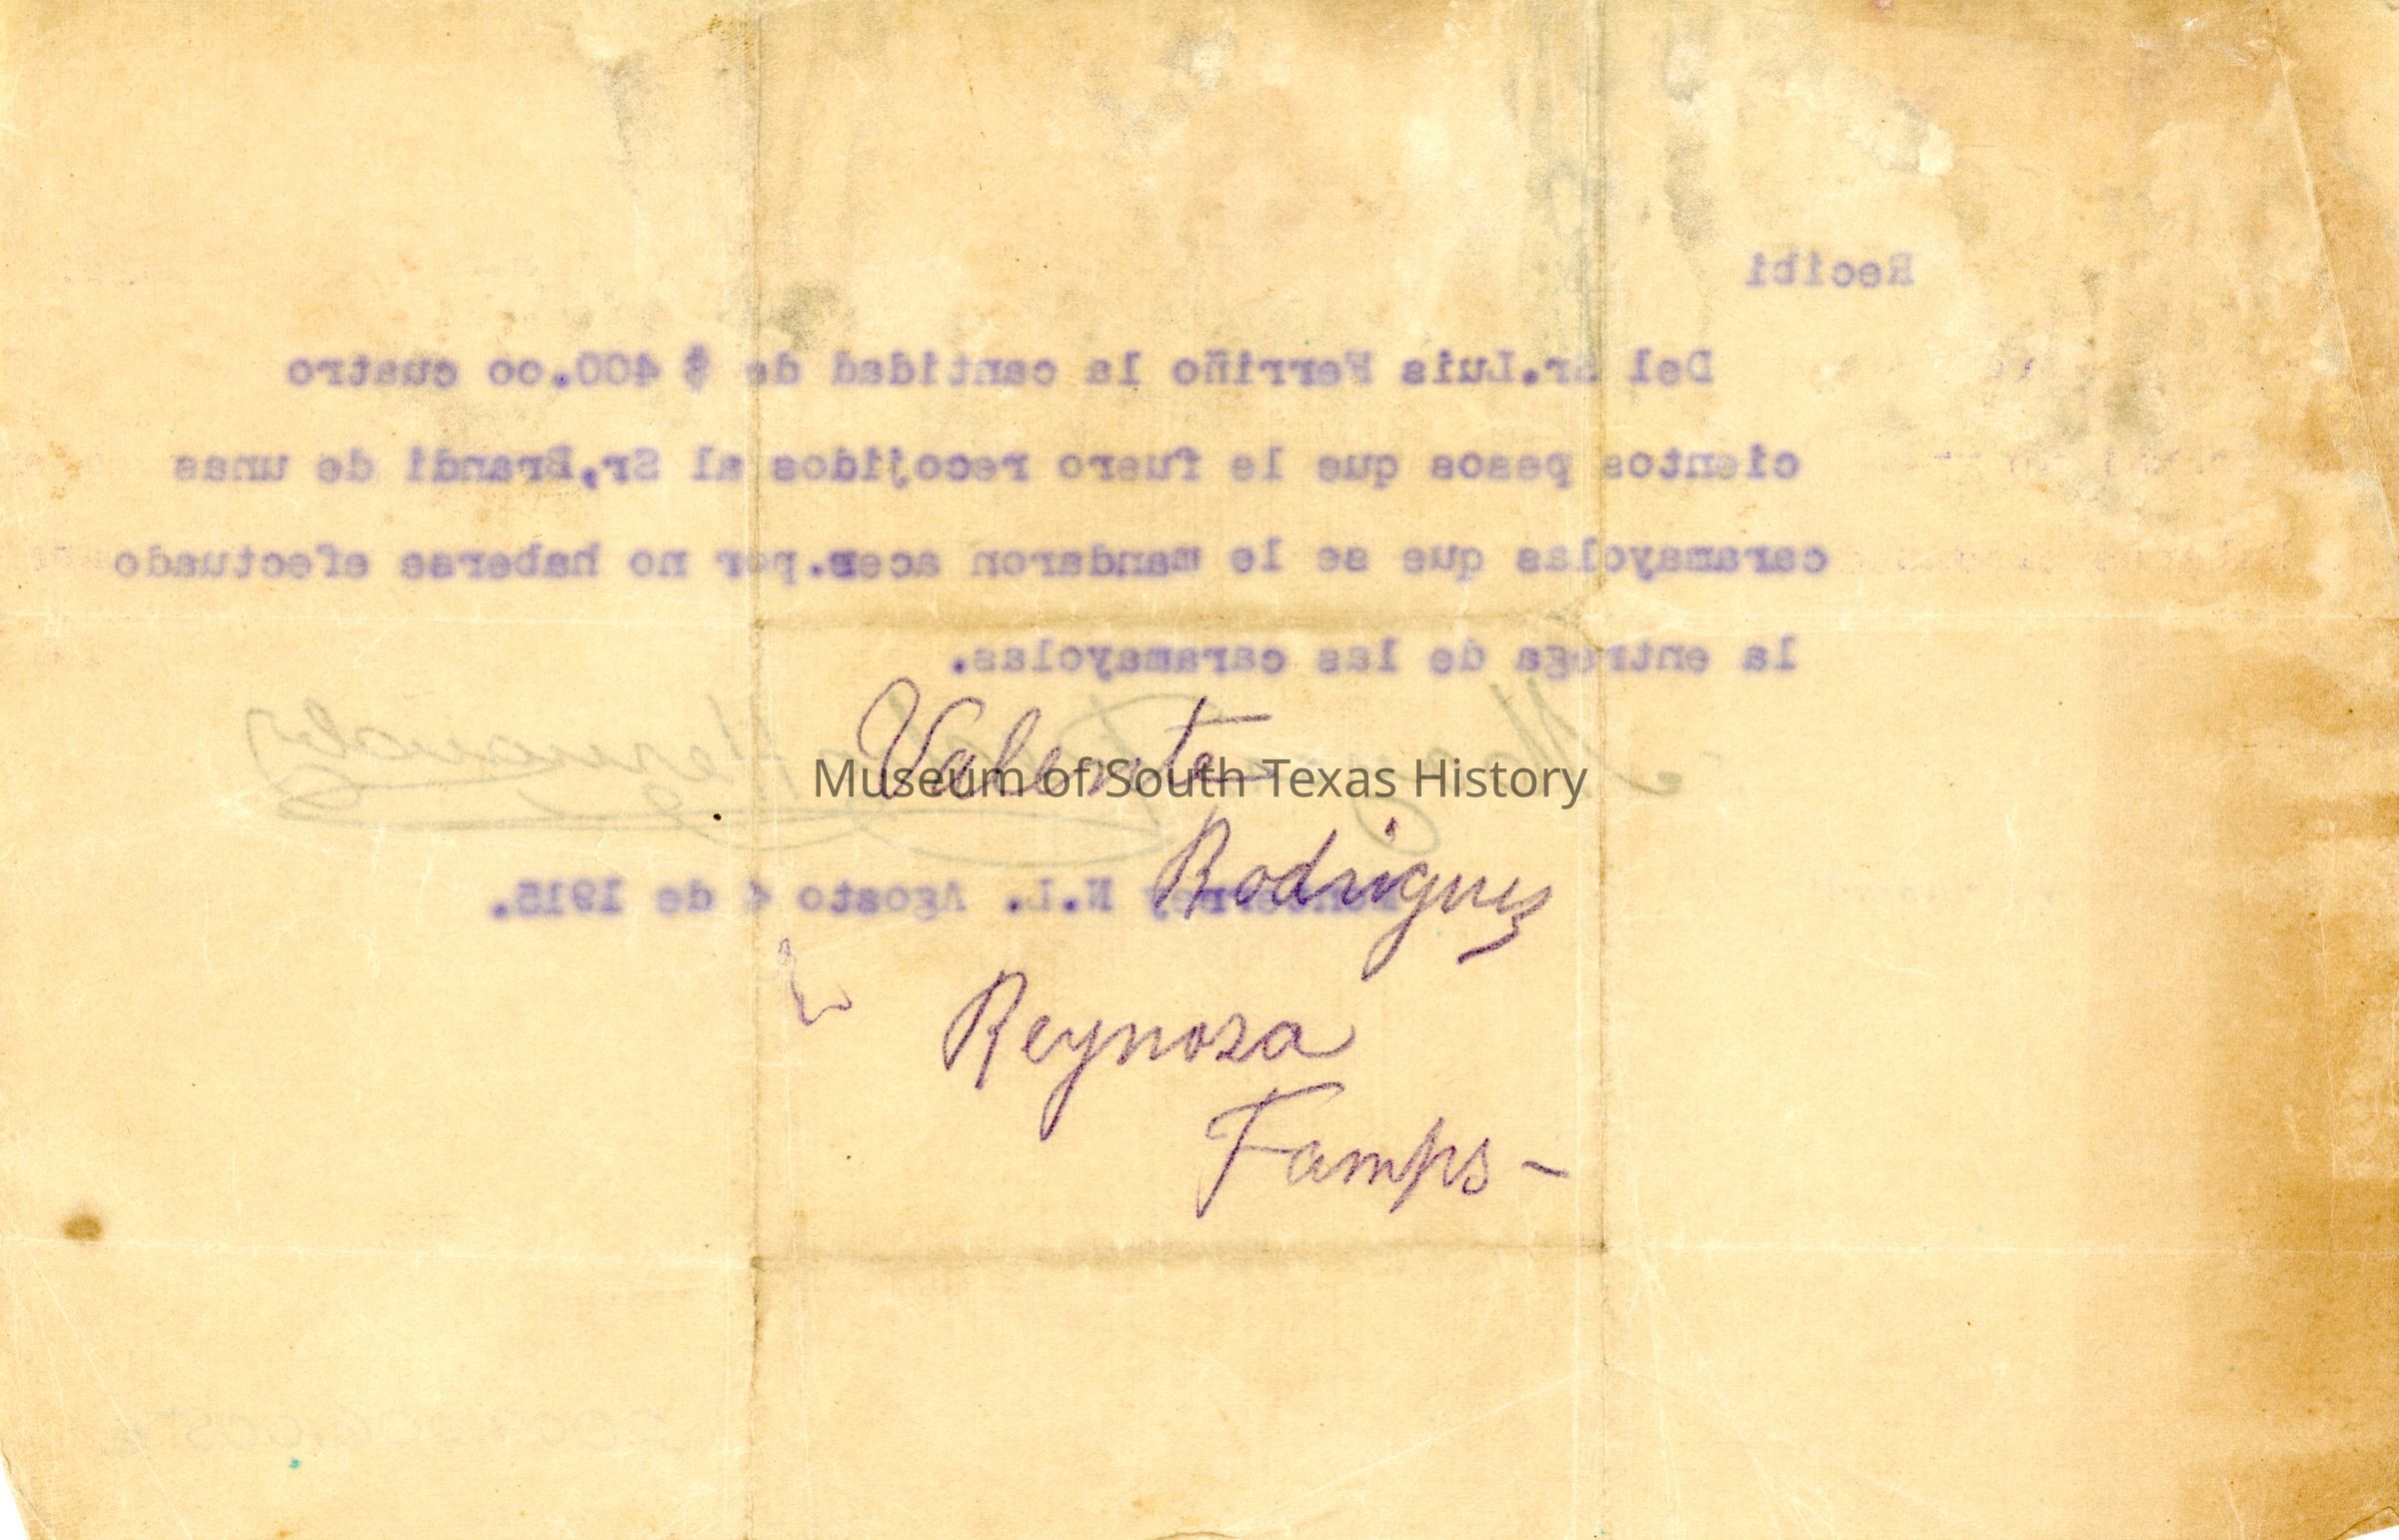 Recibi
Del Sr.Luis Ferriño la cantidad de $ 400.oo cuatro
cientos pesos que le fuero recojidos al Sr,Brandi de unas
caramayolas que se le mandaron acer.por no haberse efectuado
la entrega de las caramayolas.
Valente
Museum of South Texas History
Rodriguez
Monterrey N.L. Agosto 4 de 1915.
Reynosa
Tamps-